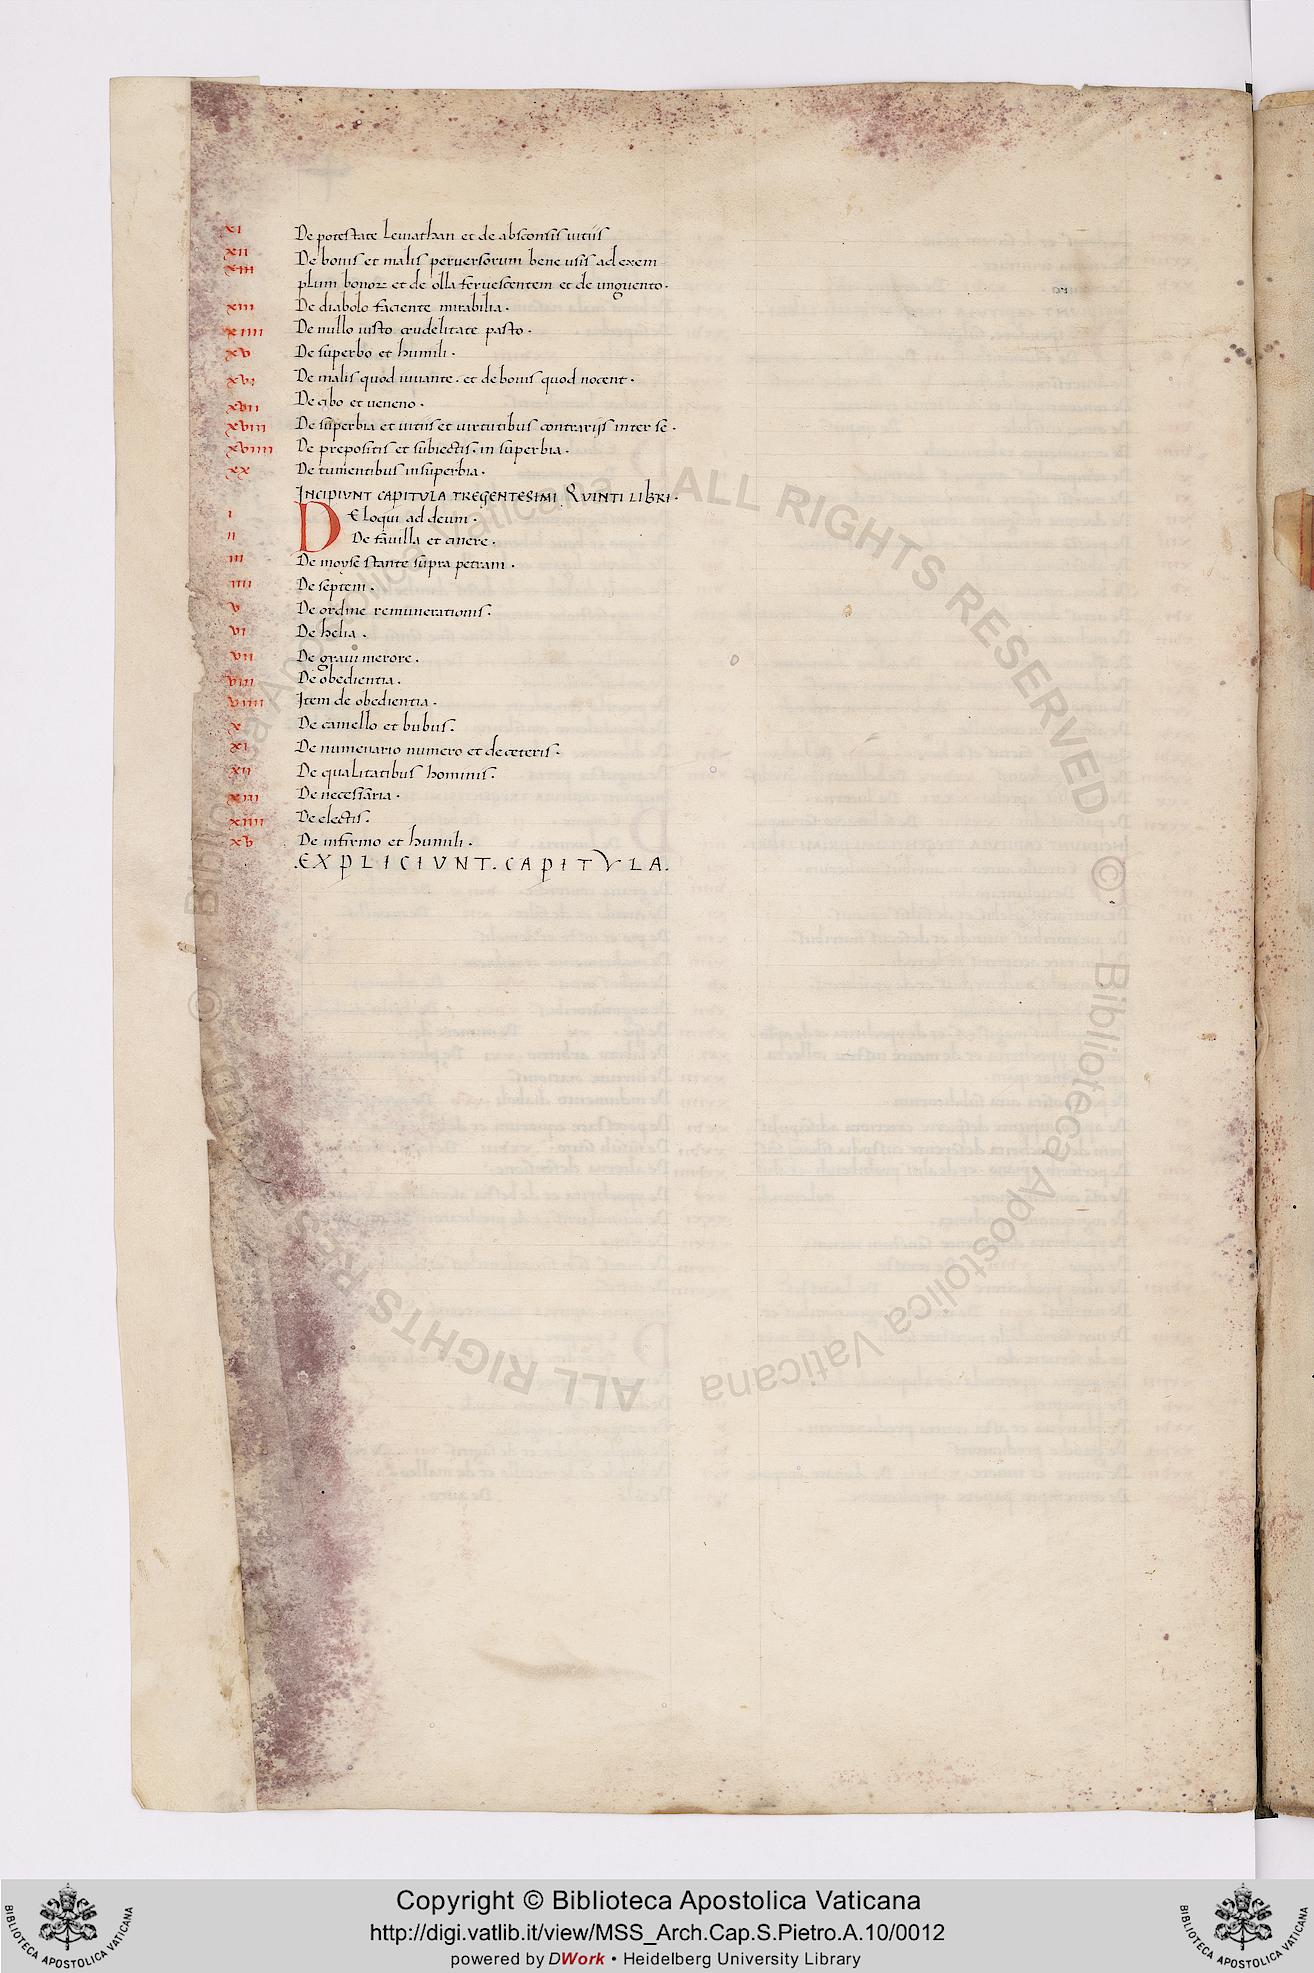 xi De potestate leuiathan et de absconsis uitiis
xii De bonis et malis peruersorum bene usis ad exem
xiii plum bonoꝝ et de olla feruescentem et de unguento.
xiii De diabolo faciente mirabilia.
xiiii De nullo iusto crudelitate pasto.
xv De superbo et humili.
xvi De malis quod iuuante. et de bonis quod nocent.
xvii De cibo et ueneno.
xviii De superbia et uitiis et uirtutibus contrarijs inter se.
xviiii De prepositis et subiectis. in superbia.
xx De tumentibus insuperbia.
INCIPIVNT CAPITVLA TREGENTESIMI QVINTI LIBRI.
i DEloqui ad deum.
ii De fauilla et cinere.
iii De moyse stante supra petram.
iiii De septem.
v De ordine remunerationis.
vi De helia.
vii De graui merore.
viii De obedientia.
viiii Item de obedientia.
x De camello et bubus.
xi De numenario numero et de ceteris.
xii De qualitatibus hominis.
xiii De necessaria.
xiiii De electis.
xv De infirmo et humili.
.EXPLICIVNT. CAPITVLA.
© Biblioteca Apostolica Vaticana - ALL RIGHTS RESERVED
© Biblioteca Apostolica Vaticana
ALL RIGHTS RESERVED ©
Copyright © Biblioteca Apostolica Vaticana
http://digi.vatlib.it/view/MSS_Arch.Cap.S.Pietro.A.10/0012
powered by DWork • Heidelberg University Library
BIBLIOTECA APOSTOLICA VATICANA
BIBLIOTECA APOSTOLICA VATICANA